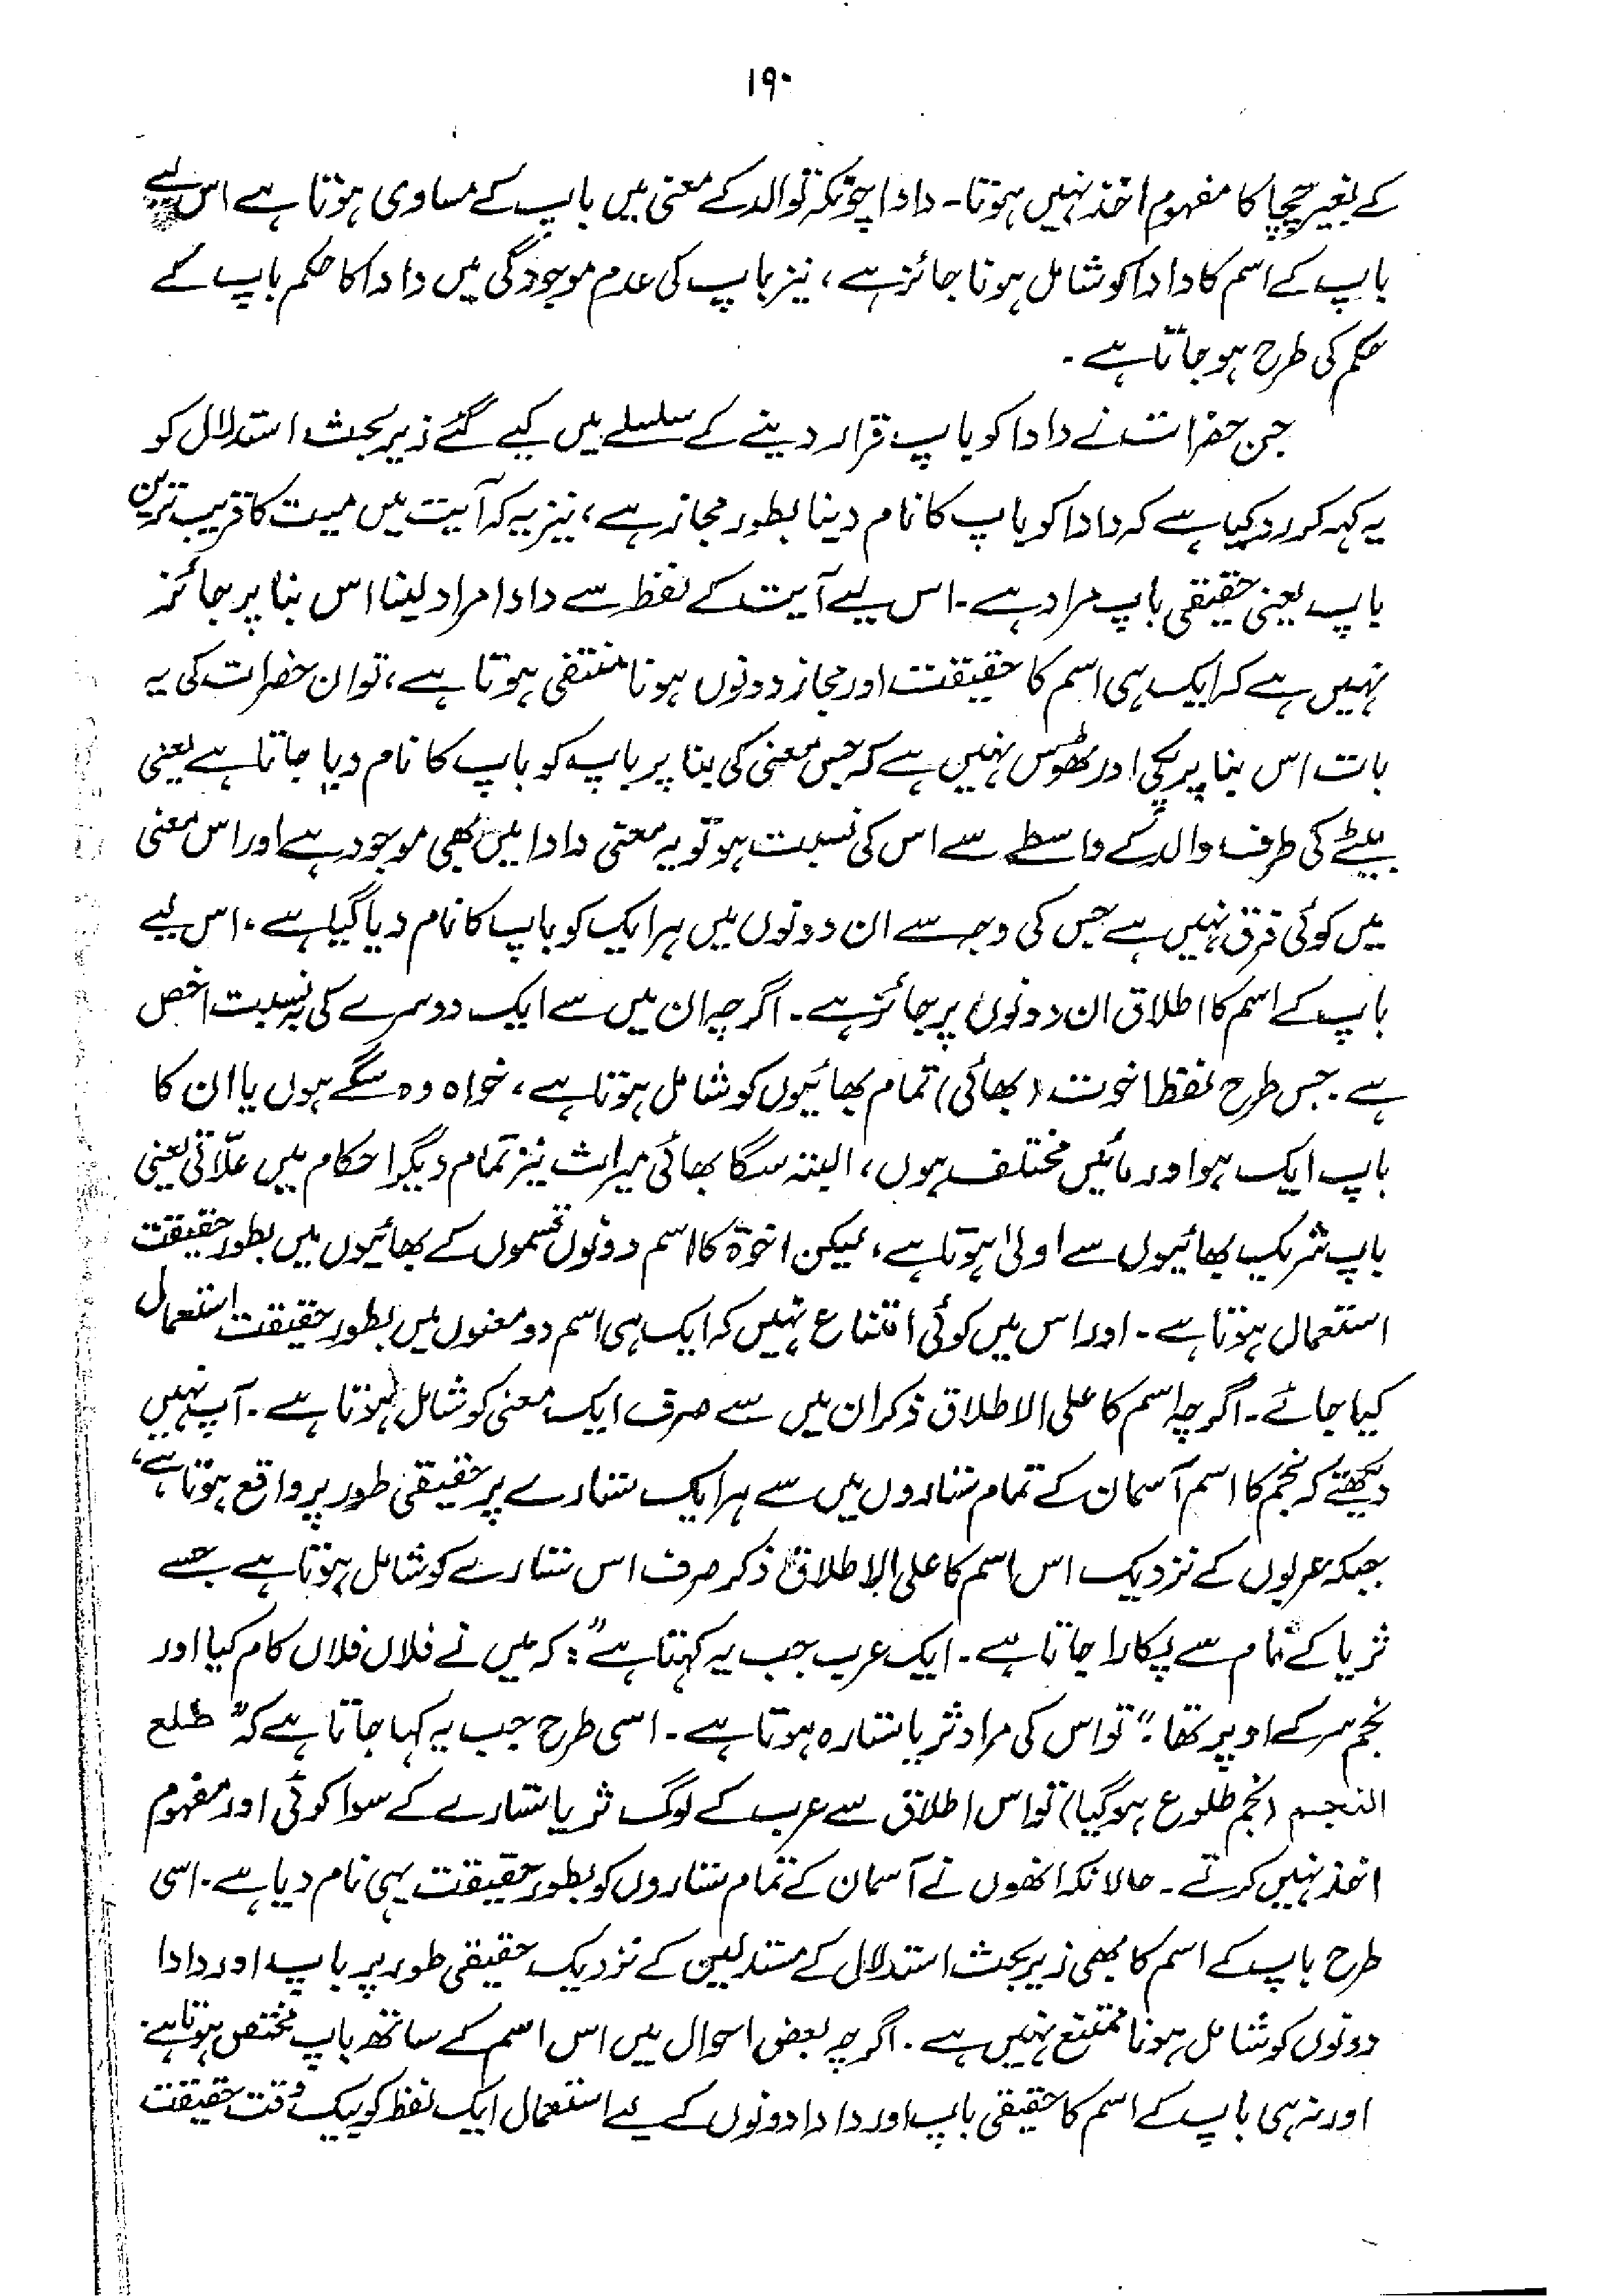 ۱۹۰
کے بغیر چچا کا مفہوم اخذ نہیں ہوتا۔ دادا چونکہ توالد کے معنی میں باپ کے مساوی ہوتا ہے اس لیے
باپ کے اسم کا دادا کو شامل ہونا جائز ہے، نیز باپ کی عدم موجودگی میں دادا کا حکم باپ کے
حکم کی طرح ہو جاتا ہے۔
جن حضرات نے دادا کو باپ قرار دینے کے سلسلے میں کیے گئے زیر بحث استدلال کو
یہ کہہ کر رد کیا ہے کہ دادا کو باپ کا نام دینا بطور مجاز ہے، نیز یہ کہ آیت میں میت کا قریب ترین
باپ یعنی حقیقی باپ مراد ہے۔ اس لیے آیت کے لفظ سے دادا مراد لینا اس بنا پر جائز
نہیں ہے کہ ایک ہی اسم کا حقیقت اور مجاز دونوں ہونا منتفی ہوتا ہے، تو ان حضرات کی یہ
بات اس بنا پر پکی اور ٹھوس نہیں ہے کہ جس معنی کی بنا پر باپ کو باپ کا نام دیا جاتا ہے یعنی
بیٹے کی طرف والد کے واسطے سے اس کی نسبت ہو تو یہ معنی دادا میں بھی موجود ہے اور اس معنی
میں کوئی فرق نہیں ہے جس کی وجہ سے ان دونوں میں ہر ایک کو باپ کا نام دیا گیا ہے، اس لیے
باپ کے اسم کا اطلاق ان دونوں پر جائز ہے۔ اگرچہ ان میں سے ایک دوسرے کی بہ نسبت اخص
ہے۔ جس طرح لفظ اخوت (بھائی) تمام بھائیوں کو شامل ہوتا ہے، خواہ وہ سگے ہوں یا ان کا
باپ ایک ہو اور مائیں مختلف ہوں، البتہ سگا بھائی میراث نیز تمام دیگر احکام میں علّاتی یعنی
باپ شریک بھائیوں سے اولیٰ ہوتا ہے، لیکن اخوۃ کا اسم دونوں قسموں کے بھائیوں میں بطور حقیقت
استعمال ہوتا ہے۔ اور اس میں کوئی امتناع نہیں کہ ایک ہی اسم دو معنوں میں بطور حقیقت استعمال
کیا جائے۔ اگرچہ اسم کا علی الاطلاق ذکر ان میں سے صرف ایک معنی کو شامل ہوتا ہے۔ آپ نہیں
دیکھتے کہ نجم کا اسم آسمان کے تمام ستاروں میں سے ہر ایک ستارے پر حقیقی طور پر واقع ہوتا ہے،
جبکہ عربوں کے نزدیک اس اسم کا علی الاطلاق ذکر صرف اس ستارے کو شامل ہوتا ہے جسے
ثریا کے نام سے پکارا جاتا ہے۔ ایک عرب جب یہ کہتا ہے: "کہ میں نے فلاں فلاں کام کیا اور
نجم سر کے اوپر تھا" تو اس کی مراد ثریا ستارہ ہوتا ہے۔ اسی طرح جب یہ کہا جاتا ہے کہ "طلع
النجم (نجم طلوع ہو گیا) تو اس اطلاق سے عرب کے لوگ ثریا ستارے کے سوا کوئی اور مفہوم
اخذ نہیں کرتے۔ حالانکہ انھوں نے آسمان کے تمام ستاروں کو بطور حقیقت یہی نام دیا ہے۔ اسی
طرح باپ کے اسم کا بھی زیر بحث استدلال کے مستدلین کے نزدیک حقیقی طور پر باپ اور دادا
دونوں کو شامل ہونا ممتنع نہیں ہے۔ اگرچہ بعض احوال میں اس اسم کے ساتھ باپ مختص ہوتا ہے۔
اور نہ ہی باپ کے اسم کا حقیقی باپ اور دادا دونوں کے لیے استعمال ایک لفظ کو بیک وقت حقیقت